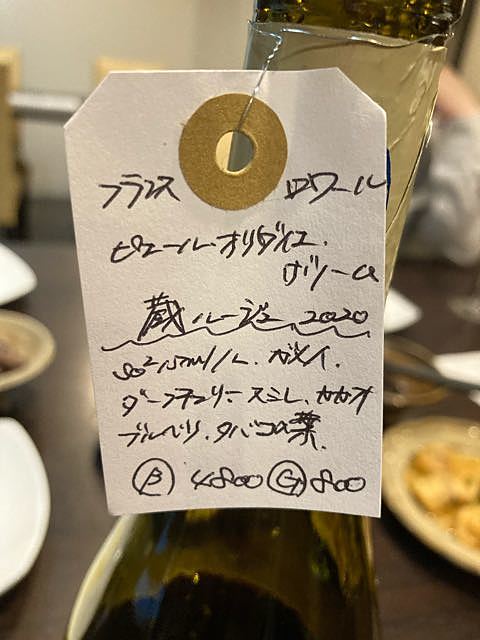 フランス ロワール
ピエール・オリヴィエ・
ボノーム
蔵ルージュ 2020
so2 15ml/L. ガメイ.
ダークチェリー スミレ. カカオ
ブルーベリ. タバコの葉.
Ⓑ 4800 Ⓖ 800